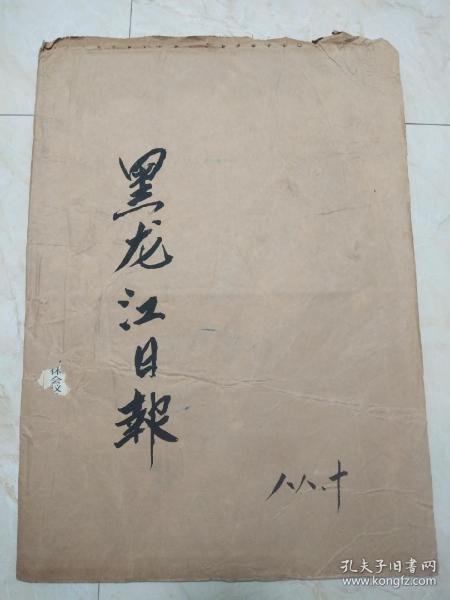 黑龙江日報
八八.十
体会议
孔夫子旧书网
www.kongfz.com